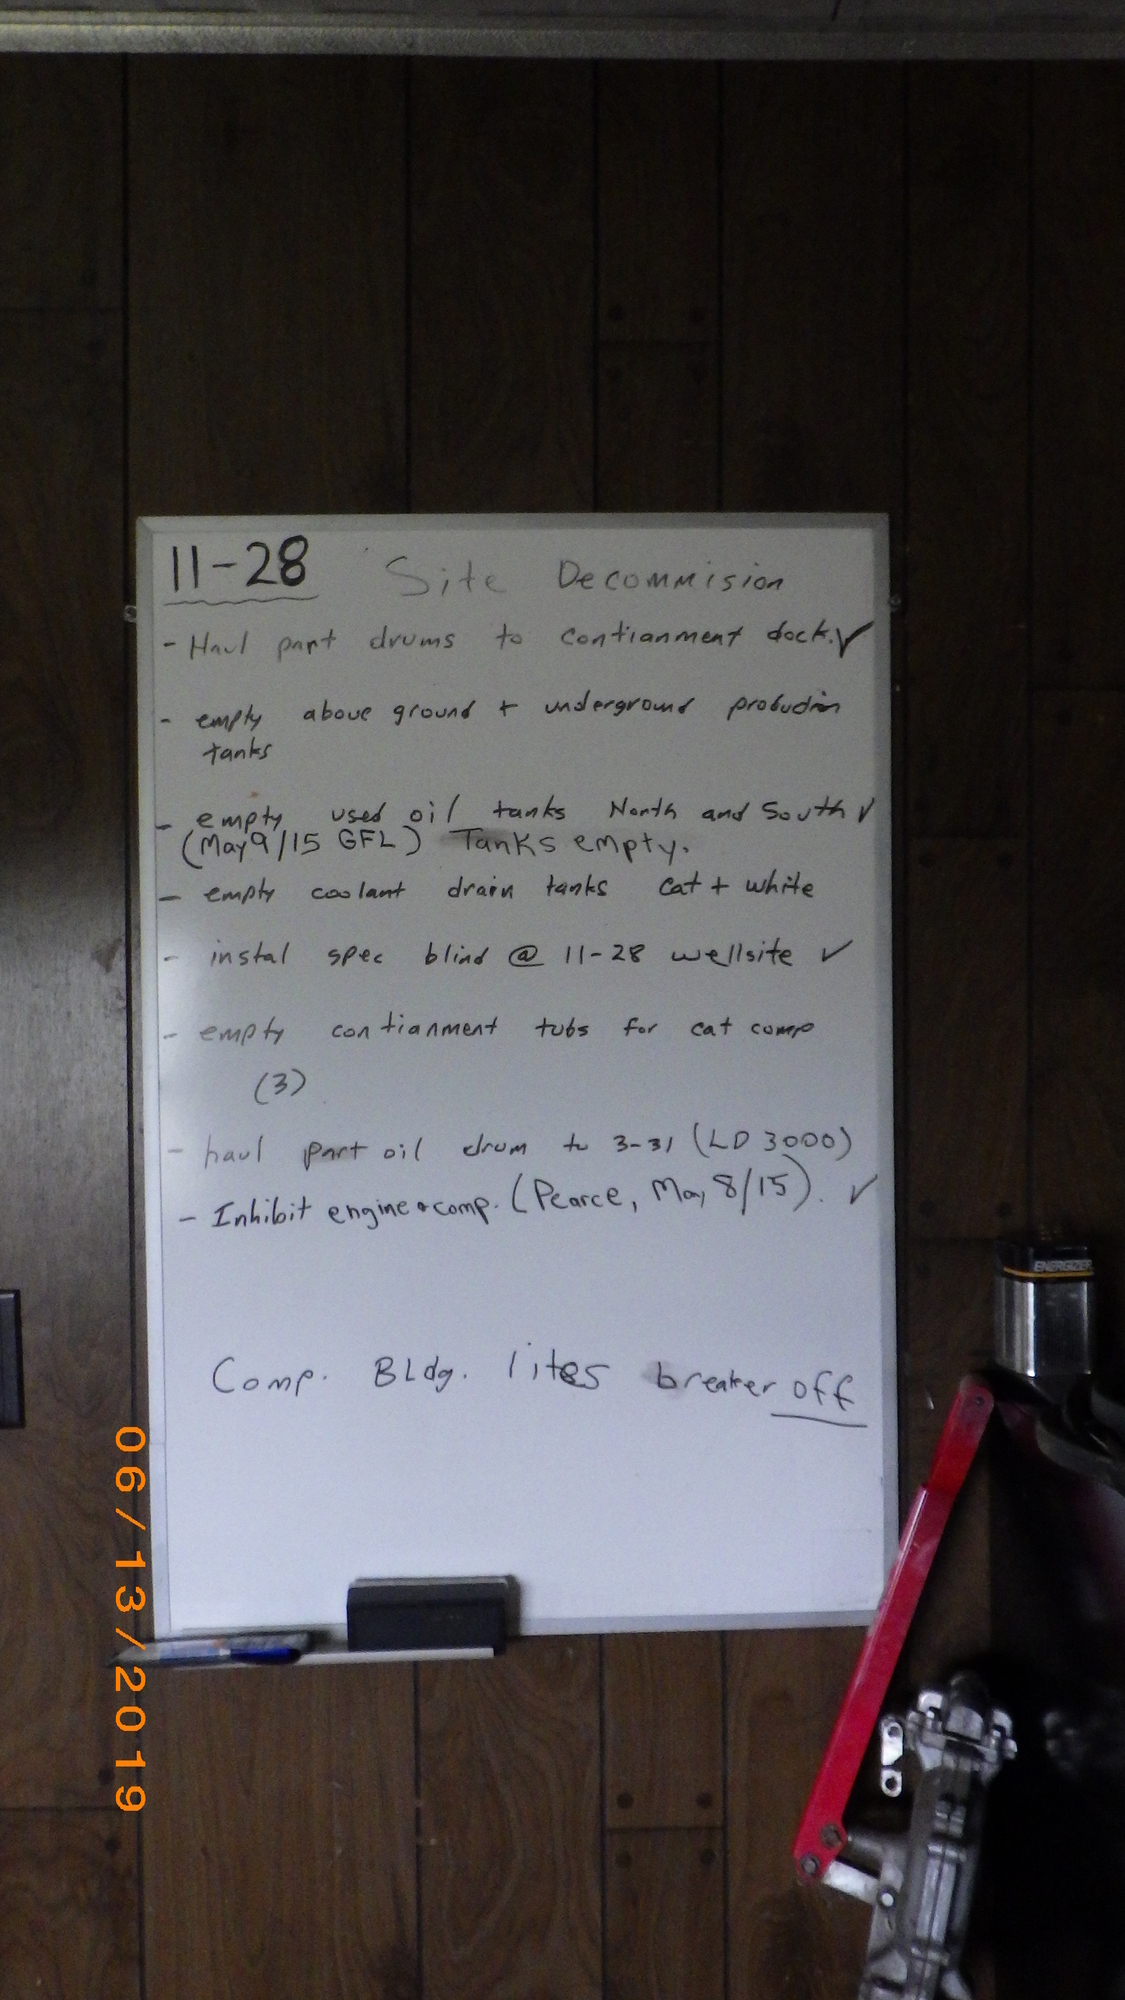 11-28 Site Decommision
- Haul part drums to contianment dock. ✓
- empty above ground + underground production
tanks
- empty used oil tanks North and South ✓
(May 9/15 GFL) Tanks empty.
- empty coolant drain tanks cat + white
- instal spec blind @ 11-28 wellsite ✓
- empty contianment tubs for cat comp
(3)
- haul part oil drum to 3-31 (LD 3000)
- Inhibit engine & comp. (Pearce, May 8/15). ✓
Comp. BLdg. lites breaker off
ENERGIZER
06/13/2019